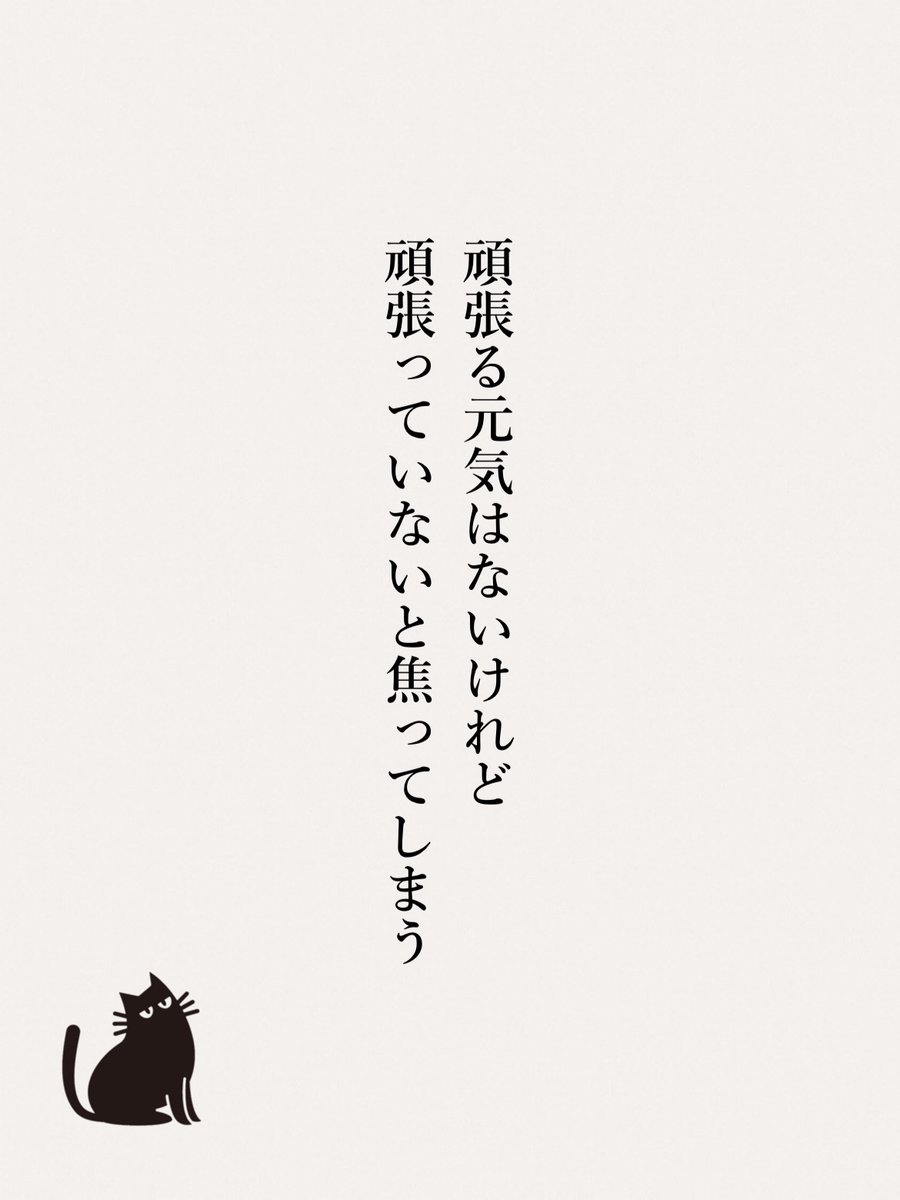 頑張る元気はないけれど
頑張っていないと焦ってしまう